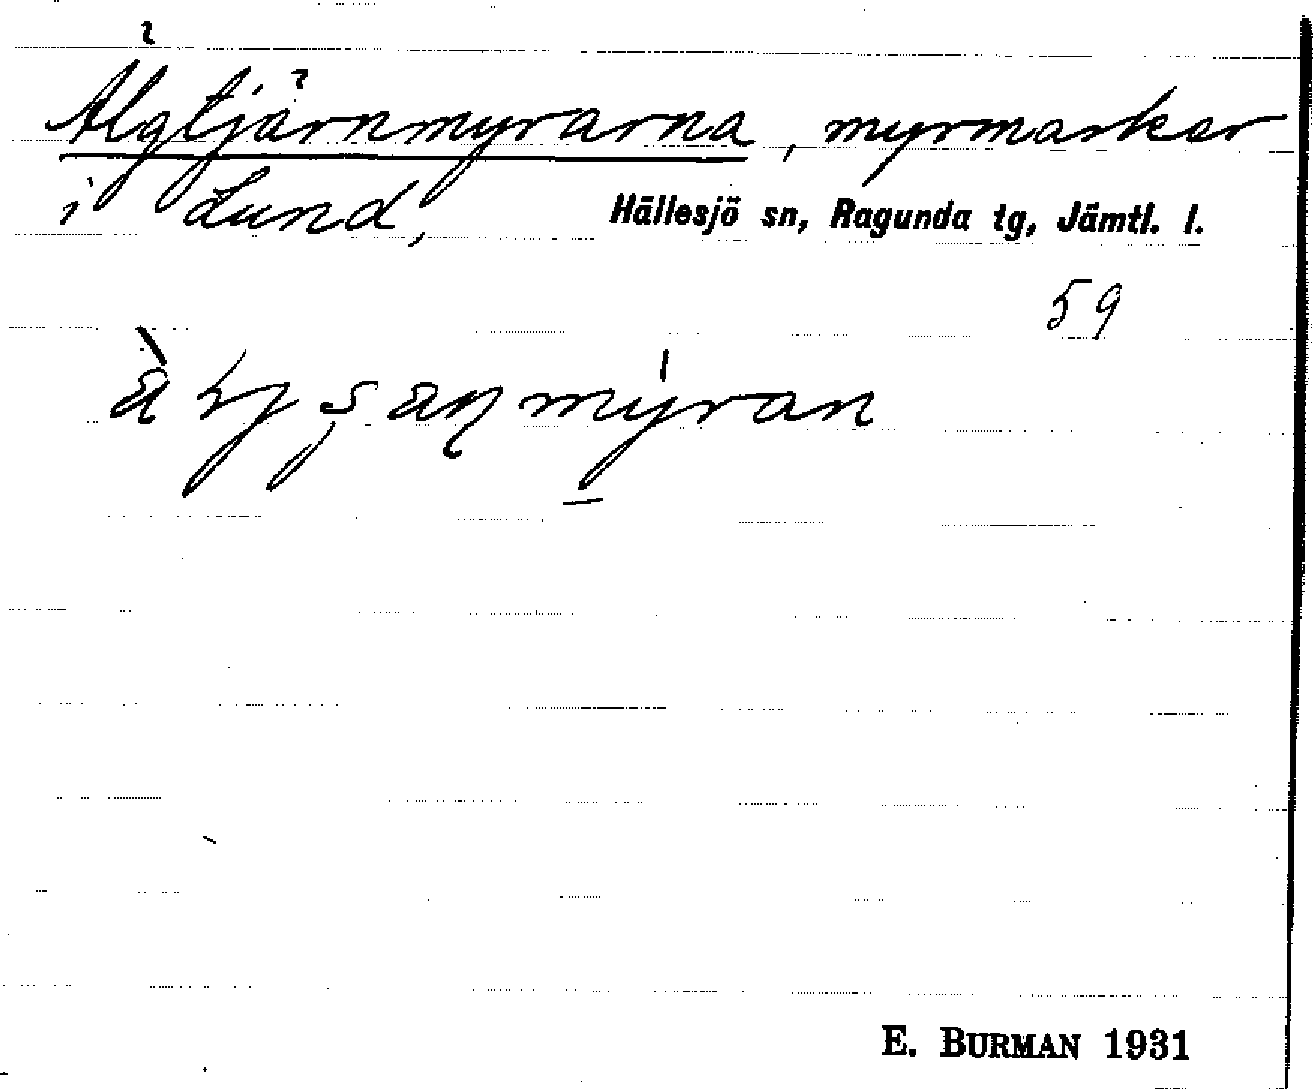 Älgtjärnmyrarna, myrmarker
i Lund,
Hällesjö sn, Ragunda tg, Jämtl. l.
59
E. BURMAN 1931